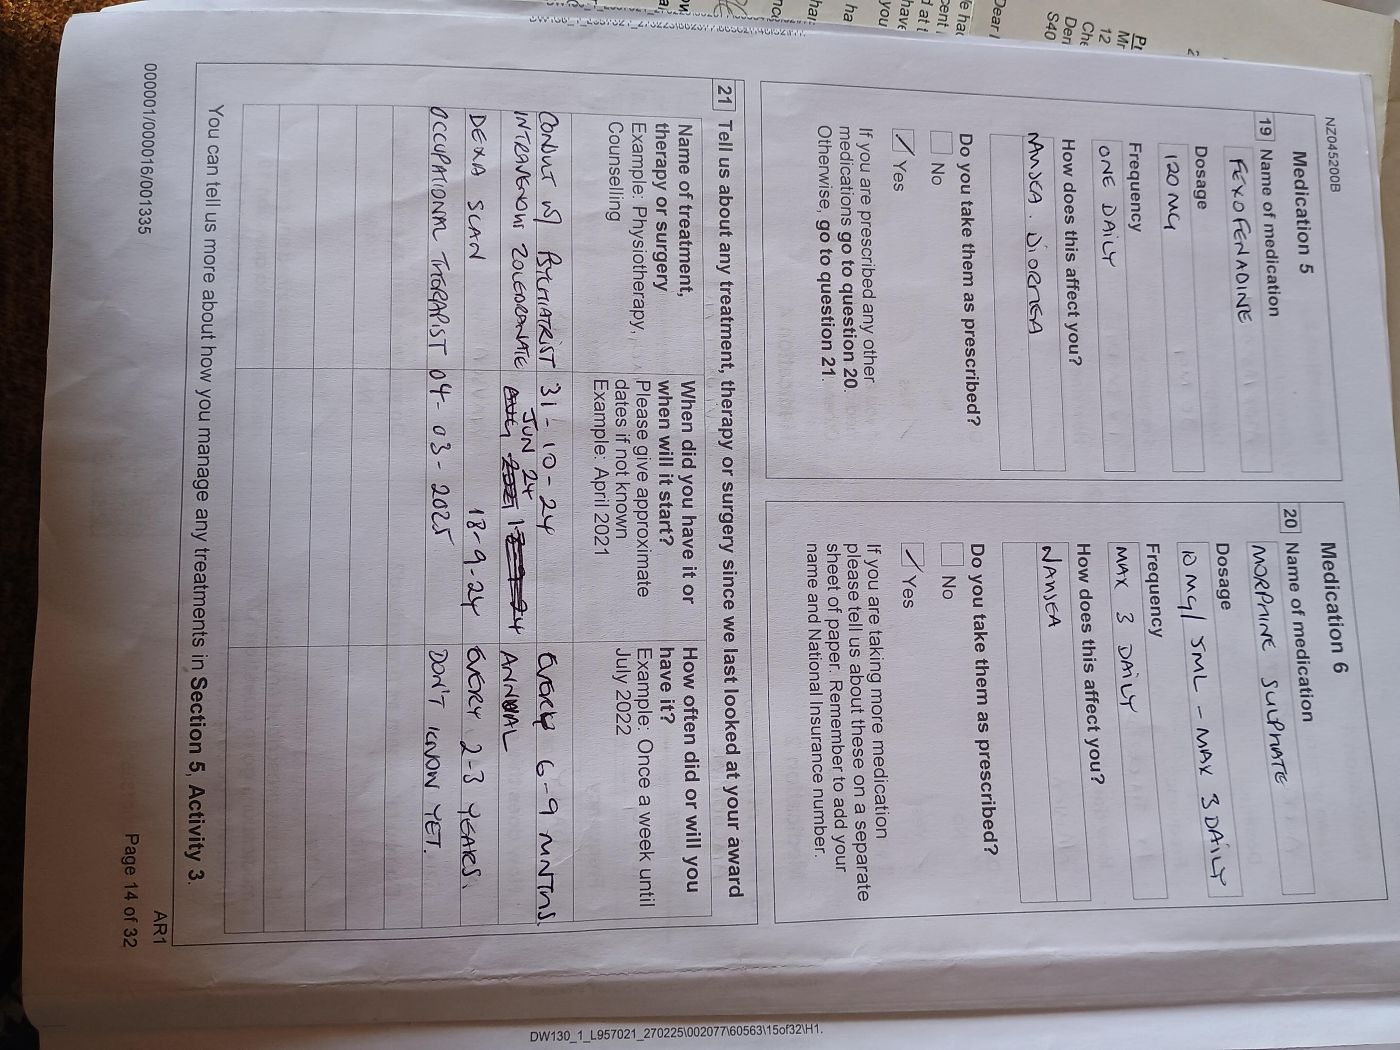 NZ045200B
Medication 5
19 Name of medication
FEXOFENADINE
Dosage
120 MG
Frequency
ONE DAILY
How does this affect you?
NAWSEA. DIORTEA
Do you take them as prescribed?
No
Yes
If you are prescribed any other
medications go to question 20.
Otherwise, go to question 21.
Medication 6
20 Name of medication
MORPHINE SULPHATE
Dosage
10 MG/ 5ML - MAX 3 DAILY
Frequency
MAX 3 DAILY
How does this affect you?
NAWSEA
Do you take them as prescribed?
No
Yes
If you are taking more medication
please tell us about these on a separate
sheet of paper. Remember to add your
name and National Insurance number.
21 Tell us about any treatment, therapy or surgery since we last looked at your award
Name of treatment,
therapy or surgery
Example: Physiotherapy,
Counselling
When did you have it or
when will it start?
Please give approximate
dates if not known
Example: April 2021
How often did or will you
have it?
Example: Once a week until
July 2022
CONSULT W/ PSYCHIATRIST 31-10-24 EVERY 6-9 MNTHS.
INTRAVENOUS ZOLEDRANATE JUN 24 ANNUAL
DEXA SCAN 18-9-24 EVERY 2-3 YEARS.
OCCUPATIONAL THERAPIST 04-03-2025 DON'T KNOW YET.
You can tell us more about how you manage any treatments in Section 5, Activity 3.
000001/000016/001335
AR1
Page 14 of 32
DW130_1_L957021_270225\002077\60563\15of32\H1.